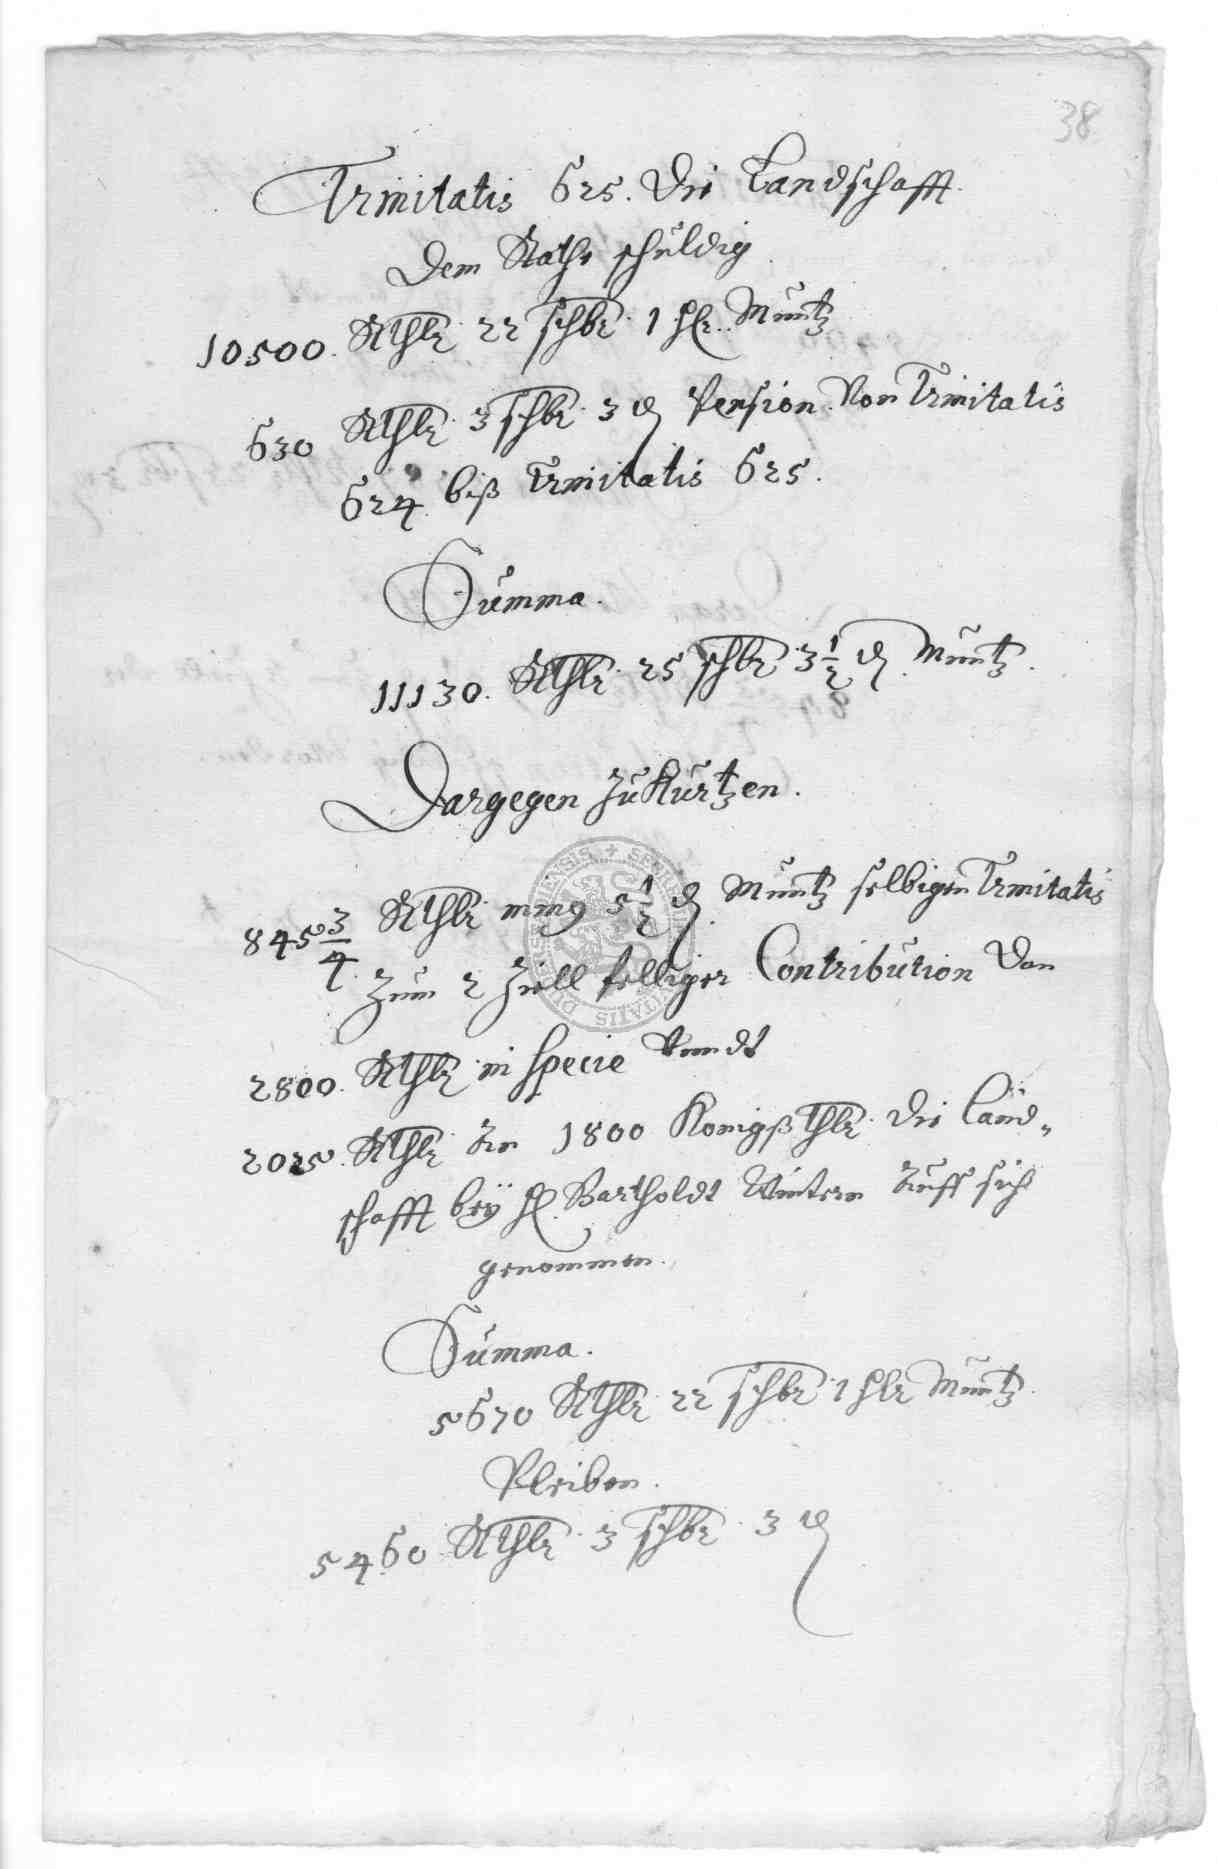 38
Trinitatis 625. Die Landschafft
Dem Rathe schuldig
10500. Rthlr 22 schlr 1 hlr. Müntz
630 Rthlr 3 schlr 3 ₰ Pension Von Trinitatis
624 biß Trinitatis 625.
Summa.
11130. Rthlr 25 schlr 3 1/2 ₰ Müntz.
Dargegen zu Kürtzen.
845 3/4 Rthlr ming 5 1/2 ₰ Müntz selbigen Trinitatis
Zum 2 Ziell felliger Contribution Von
2800. Rthlr in specie Vnndt
2025. Rthlr An 1800 Konigßthlr Die Land-
schafft beÿ H. Bartholdt Wintern Auff sich
genommen.
Summa.
5670 Rthlr 22 schlr 1 hlr Müntz.
Pleiben.
5460 Rthlr 3 schlr 3 ₰